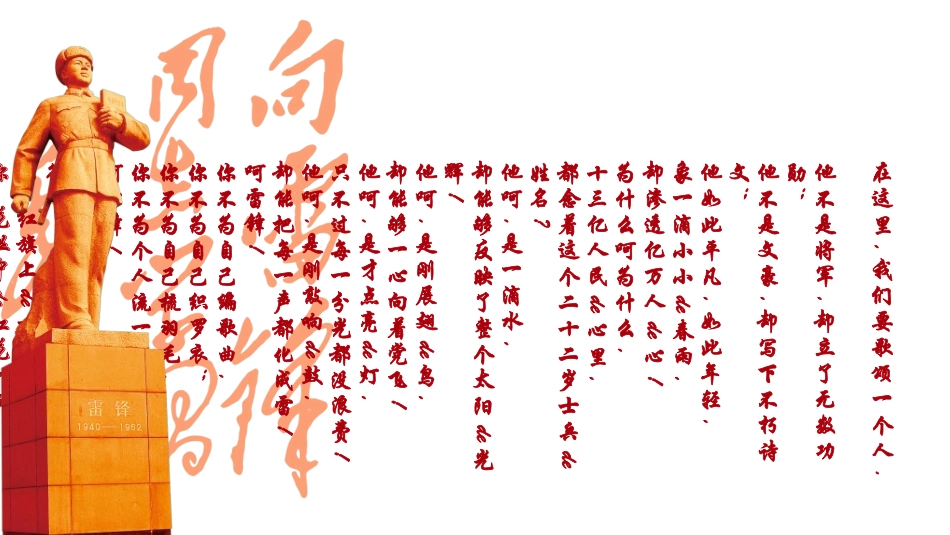 在这里、我们要歌颂一个人.
他不是将军、却立了无数功
勋；
他不是文豪、却写下不朽诗
文；
他如此平凡、如此年轻、
象一滴小小的春雨、
却渗透亿万人的心！
为什么呵为什么、
十三亿人民的心里、
都念着这个二十二岁士兵的
姓名？
他呵、是一滴水、
却能够反映了整个太阳的光
辉！
他呵、是刚展翅的鸟、
却能够一心向着党飞！
他呵、是才点亮的灯、
只不过每一分光都没浪费！
他呵、是刚敲响的鼓、
却能把每一声都化成雷！
呵雷锋！
你不为自己编歌曲、
你不为自己织罗衣；
你不为自己梳羽毛
你不为个人流一
红旗上的
向雷锋
同志
雷锋
1940—1962